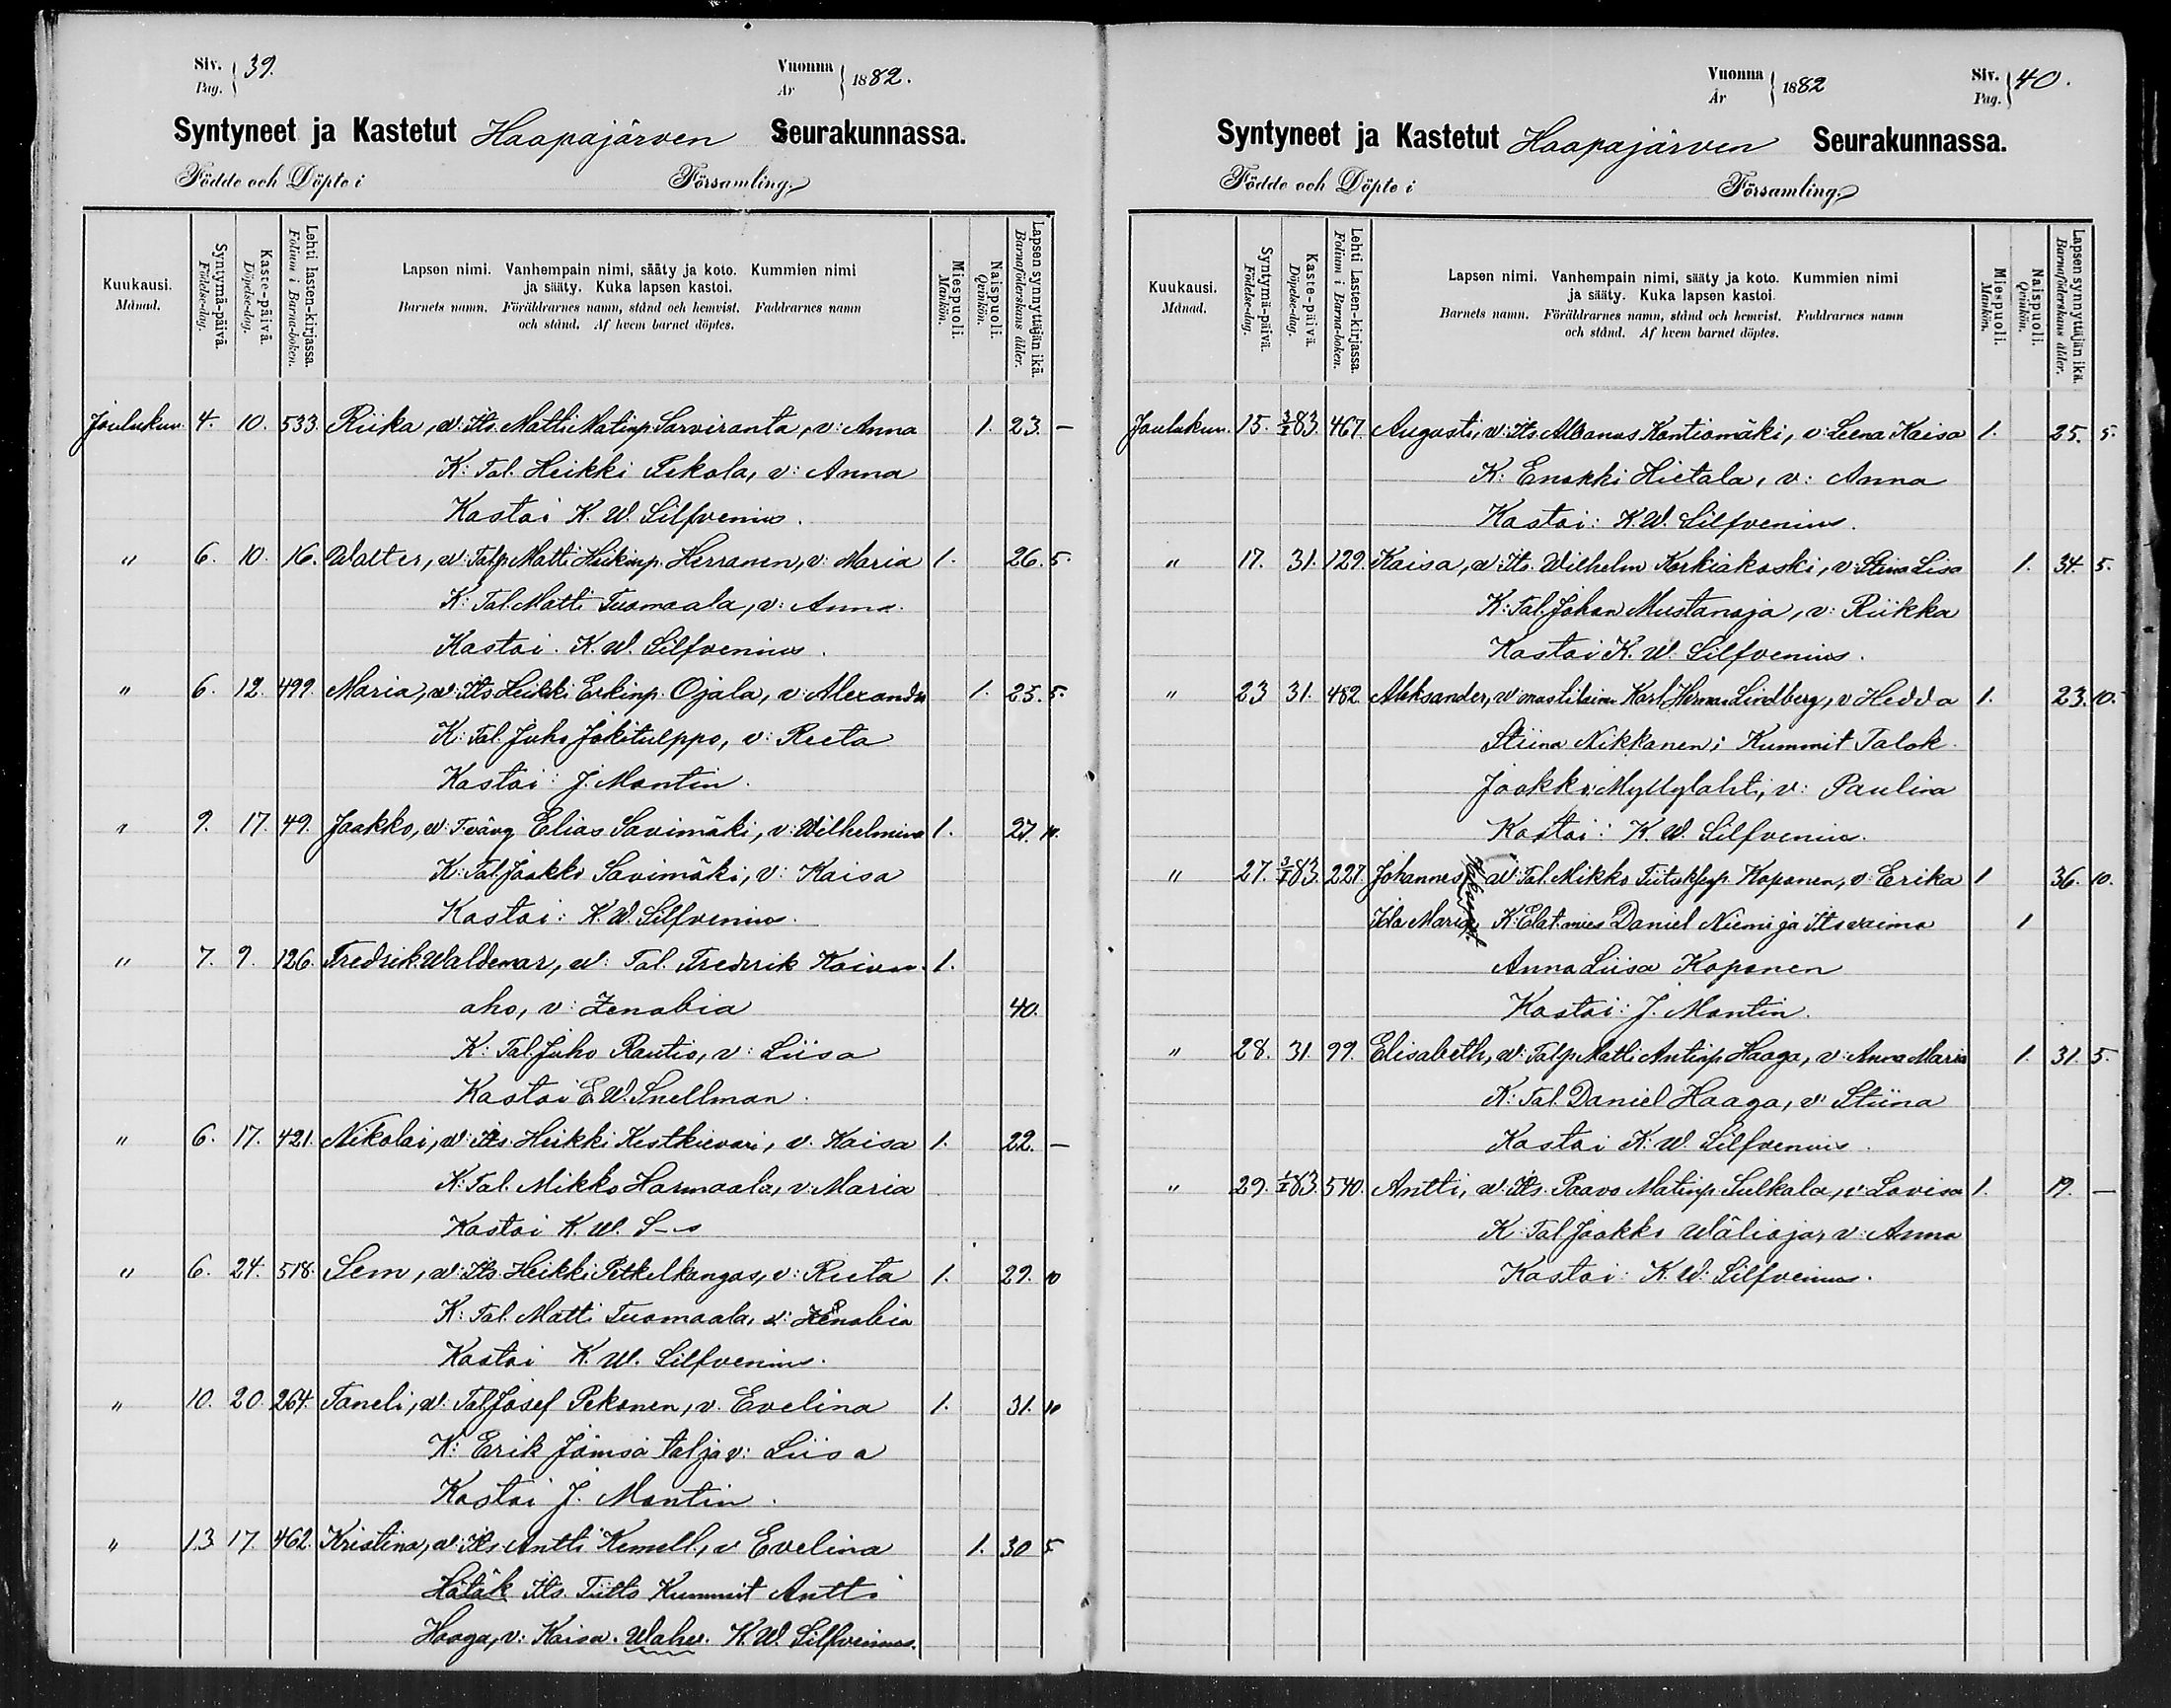 Siv. Pag. 39.
Vuonna År 1882.
Syntyneet ja Kastetut Haapajärven Seurakunnassa.
Födde och Döpte i Församling.
Kuukausi. Månad.
Syntymä-päivä. Födelse-dag.
Kaste-päivä. Döpelse-dag.
Lehti lasten-kirjassa. Folium i Barna-boken.
Lapsen nimi. Vanhempain nimi, sääty ja koto. Kummien nimi
ja sääty. Kuka lapsen kastoi.
Barnets namn. Föräldrarnes namn, stånd och hemvist. Faddrarnes namn
och stånd. Af hvem barnet döptes.
Miespuoli. Mankön.
Naispuoli. Qvinkön.
Lapsen synnyttäjän ikä. Barnaföderskans ålder.
Joulukuu. 4. 10. 533. Riika, w: Its. Matti Matinp. Sarviranta, v: Anna 1. 23. —
K: Tal. Heikki Pekola, v: Anna
Kastoi K. W. Silfvenius.
" 6. 10. 16. Walter, w: Talp. Matti Heikinp. Herranen, v: Maria 1. 26. 5.
K: Tal. Matti Tuomaala, v: Anna.
Kastoi. K. W. Silfvenius.
" 6. 12. 499. Maria, w: Its Heikki Erkinp. Ojala, v: Alexandra 1. 25. 5.
K: Tal. Juho Jokitulppo, v: Reeta
Kastoi: J. Montin.
" 9. 17. 49. Jaakko, w: Tvävg Elias Savimäki, v: Wilhelmina 1. 27. 10.
K: Tal. Jaakko Savimäki, v: Kaisa
Kastoi: K. W. Silfvenius.
" 7. 9. 126. Fredrik Waldemar, w: Tal. Fredrik Koivu- 1.
aho, v: Zenobia 40.
K: Tal. Juho Rautio, v: Liisa
Kastoi E. W. Snellman.
" 6. 17. 421. Nikolai, w: Its. Heikki Kestkievari, v. Kaisa 1. 22. —
K: Tal. Mikko Harmaala, v: Maria
Kastoi K. W. S-s
" 6. 24. 518. Sem, w: Its. Heikki Petkelkangas, v: Reeta 1. 29. 10
K: Tal. Matti Tuomaala, v: Zenobia
Kastoi K. W. Silfvenius.
" 10. 20. 264. Taneli, w: Tal. Josef Pekonen, v. Evelina 1. 31. 10
K: Erik Jämsä tal ja v: Liisa
Kastoi J. Montin.
" 13 17. 462. Kristina, w: Its. Antti Kemell, v Evelina 1. 30 5
Hätäk Its. Kummit Antti
Haaga, v: Kaisa. Wahv. K. W. Silfvenius.
Vuonna År 1882
Siv. Pag. 40.
Syntyneet ja Kastetut Haapajärven Seurakunnassa.
Födde och Döpte i Församling.
Kuukausi. Månad.
Syntymä-päivä. Födelse-dag.
Kaste-päivä. Döpelse-dag.
Lehti Lasten-kirjassa. Folium i Barna-boken.
Lapsen nimi. Vanhempain nimi, sääty ja koto. Kummien nimi
ja sääty. Kuka lapsen kastoi.
Barnets namn. Föräldrarnes namn, stånd och hemvist. Faddrarnes namn
och stånd. Af hvem barnet döptes.
Miespuoli. Mankön.
Naispuoli. Qvinkön.
Lapsen synnyttäjän ikä. Barnaföderskans ålder.
Joulukuu. 15. 3/1 83. 467. Augusti, w: Its Albanus Kontiomäki, v: Leena Kaisa 1. 25. 5.
K: Enokki Hietala, v: Anna
Kastoi: K. W. Silfvenius.
" 17. 31. 129. Kaisa, w: Its. Wilhelm Korkiakoski, v: Stina Lisa 1. 34. 5.
K: Tal. Johan Mustanoja, v: Riikka
Kastoi K. W. Silfvenius.
" 23 31. 482. Aleksander, w: Karl Herman Lindberg, v Hedda 1. 23. 10.
Stiina Nikkanen; Kummit Talok.
Jaakko Myllylahti, v: Paulina
Kastoi: K. W. Silfvenius.
" 27. 3/1 83. 227. Johannes w: Tal. Mikko Koponen, v: Erika 1 36. 10.
Ida Maria K: Elat. mies Daniel Niemi ja Its vaimo 1
Anna Liisa Koponen
Kastoi: J. Montin.
" 28. 31 99. Elisabeth, w: Talp. Matti Antinp. Haaga, v: Anna Maria 1. 31. 5.
K: Tal. Daniel Haaga, v: Stiina
Kastoi K. W. Silfvenius.
" 29. 1/1 83. 540. Antti, w: Its. Paavo Matinp. Sulkala, v: Lovisa 1. 19. —
K: Tal Jaakko Wälioja, v: Anna
Kastoi: K. W. Silfvenius.